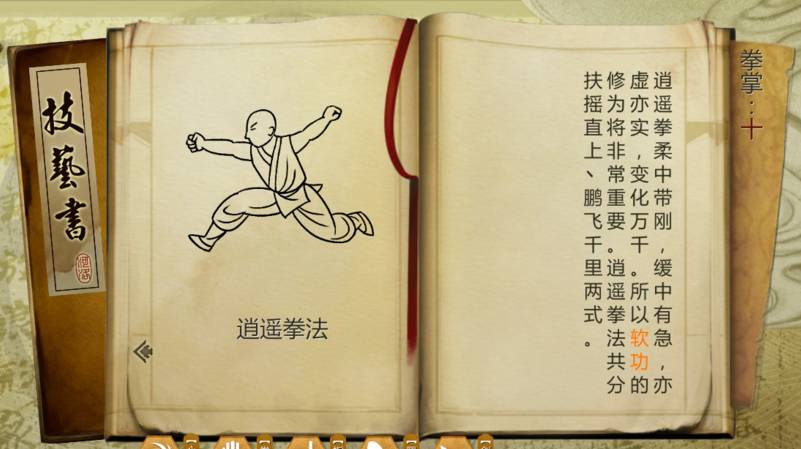 技藝書
河洛
逍遥拳法
拳掌：十
逍遥拳柔中带刚，缓中有急，亦
虚亦实，变化万千。所以软功的
修为将非常重要。逍遥拳法共分
扶摇直上、鹏飞千里两式。